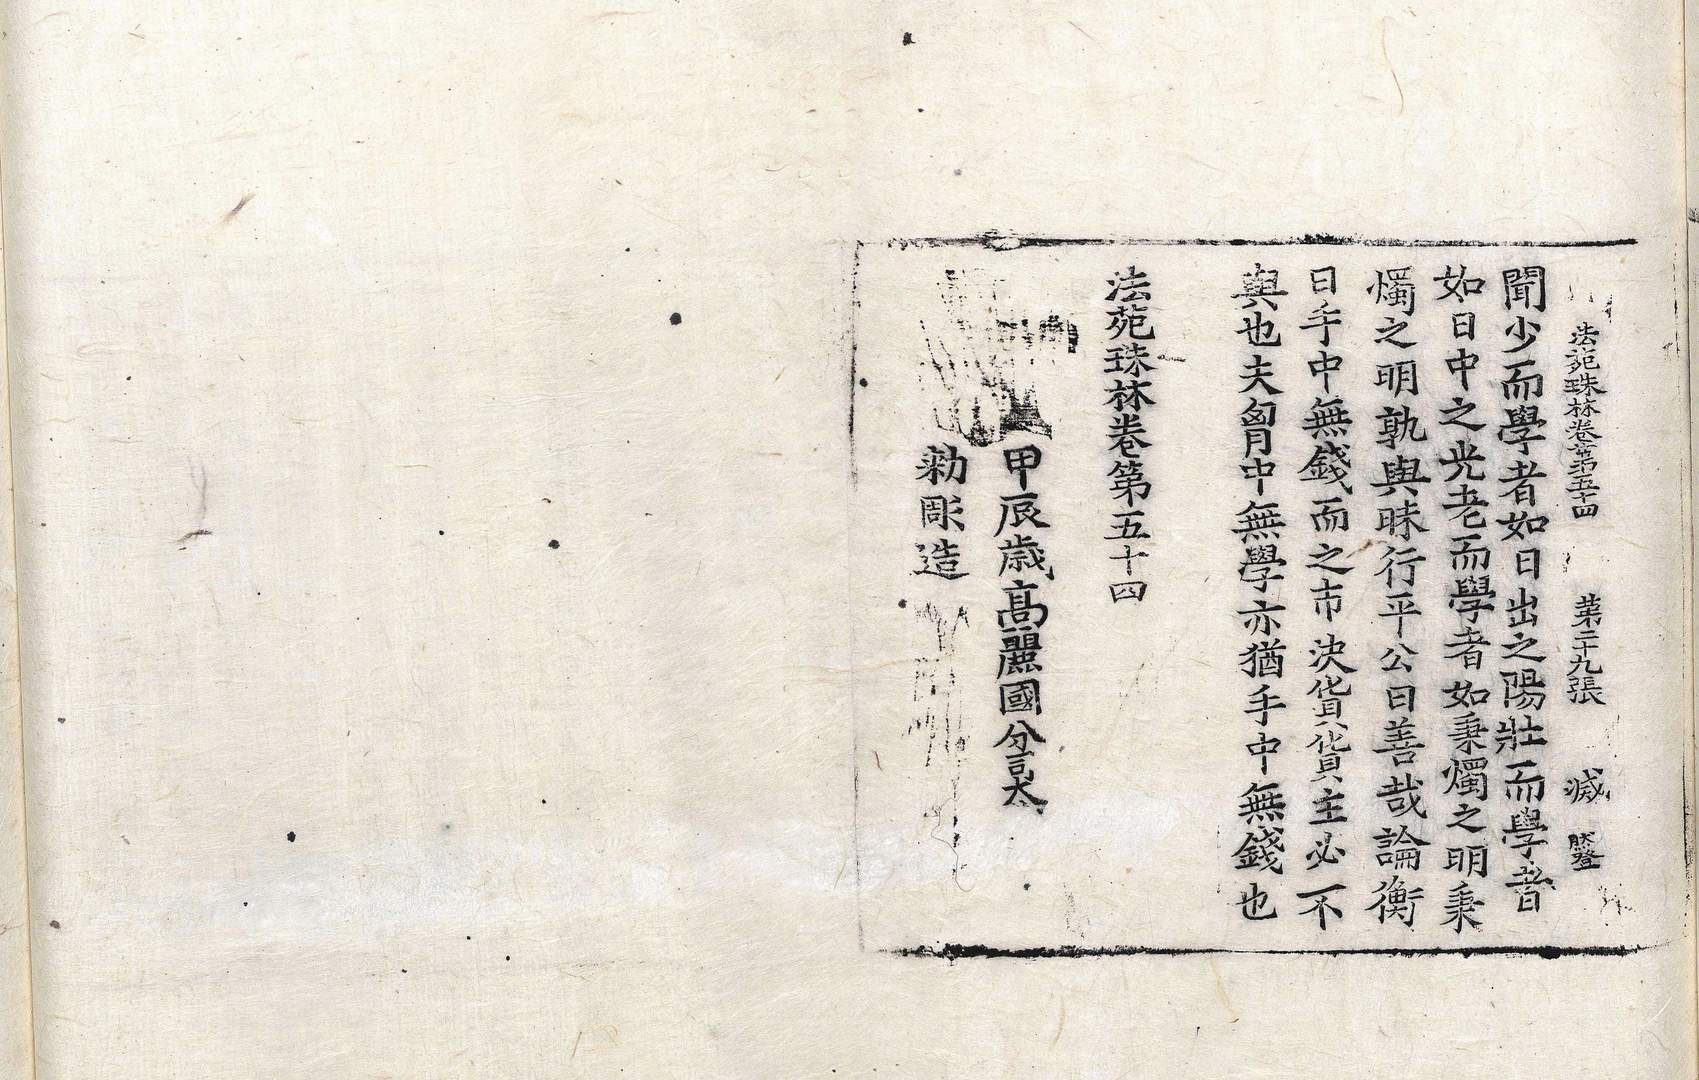 法苑珠林卷第五十四 第二十九張 滅
聞少而學者如日出之陽壯而學者
如日中之光老而學者如秉燭之明秉
燭之明孰與昧行平公曰善哉論衡
曰手中無錢而之市決貨貨主必不
與也夫胷中無學亦猶手中無錢也
法苑珠林卷第五十四
甲辰歳高麗國分司大
勅彫造